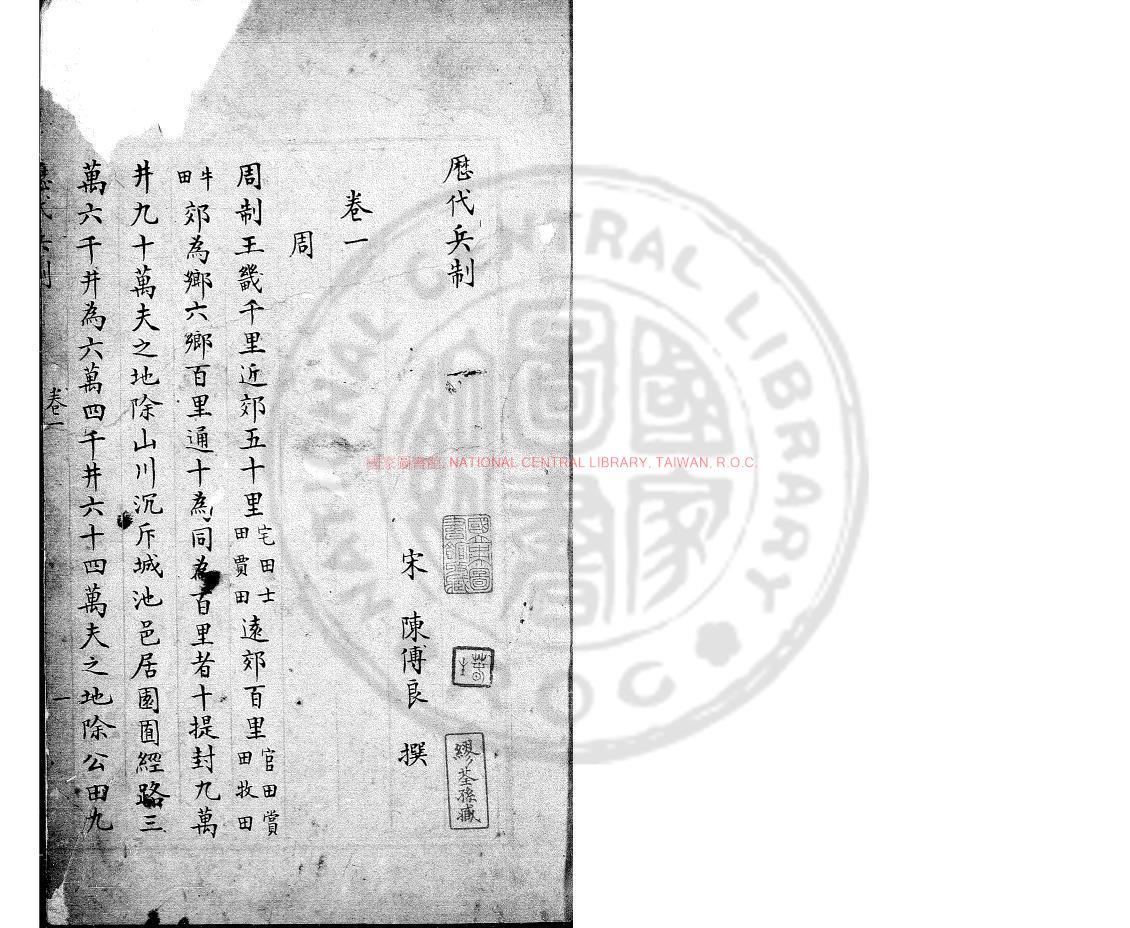 厯代兵制
國家圖書館藏
繆荃孫藏
宋 陳傅良 撰
卷一
周
周制王畿千里近郊五十里宅田士田賈田遠郊百里官田賞田牧田
牛田郊為鄉六鄉百里通十為同為百里者十提封九萬
井九十萬夫之地除山川沉斥城池邑居園囿經路三
萬六千井為六萬四千井六十四萬夫之地除公田九
卷一
一
國家圖書館, NATIONAL CENTRAL LIBRARY, TAIWAN, R.O.C.
NATIONAL CENTRAL LIBRARY
R O C